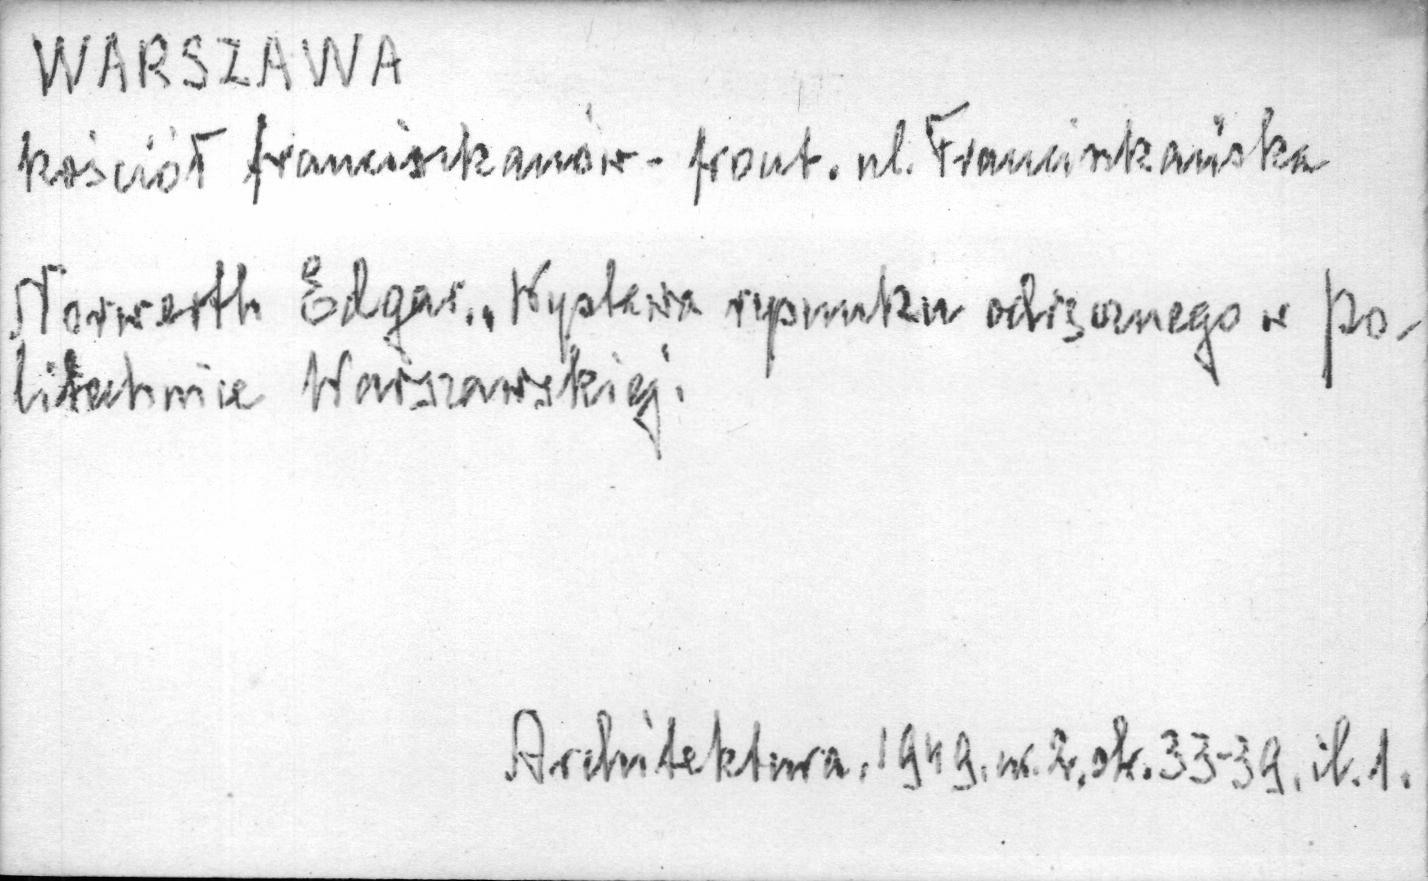 WARSZAWA
kościół franciszkanów - front. ul. Franciszkańska
Norwerth Edgar. „Wystawa rysunku odręcznego w Po-
litechnice Warszawskiej".
Architektura. 1949. nr. 2, str. 33-39. il. 1.